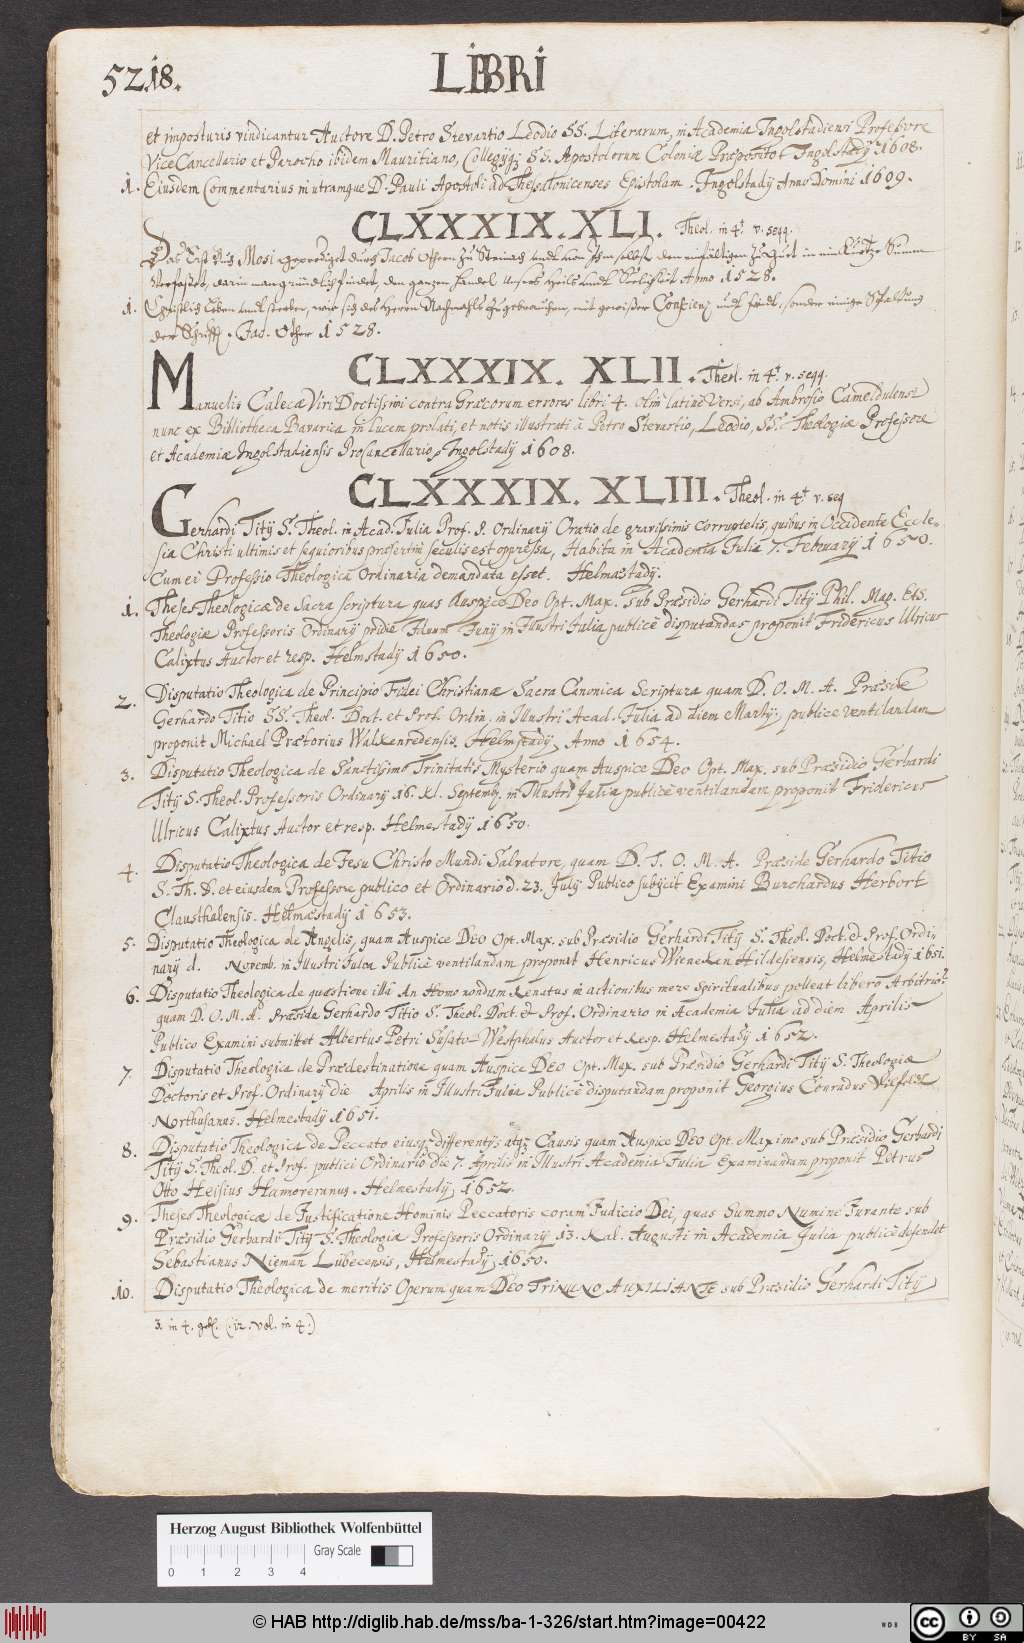 5218.
LIBRI
et imposturis vindicantur Auctore D. Petro Stevartio Leodio SS. Literarum, in Academia Ingolstadiensi Profeßore
ViceCancellario et Parocho ibidem Mauritiano, Collegijq; SS. Apostolorum Coloniæ Præposito. Ingolstadij 1608.
1. Eiusdem Commentarius in utramque D. Pauli Apostoli ad Thessalonicenses Epistolam. Ingolstadij Anno Domini 1609.
CLXXXIX. XLI. Theol. in 4t v. seqq.
Das Erst Buch Mosi geprediget durch Jacob Othern zu Steinach und von Ihm selbst den einfältigen zu gut in ein kurtze Summ
verfasset, darin man gründlich findet, den gantzen handel unsers heils und Seeligkeit Anno 1528.
1. Christlich Leben und sterben, wie sich des Herren Nachmahls zu gebrauchen, mit gewißer Conscienz und frid, sonder einige Spaltung
der Schrifft. Jac. Other 1528.
CLXXXIX. XLII. Theol. in 4t v. seqq.
Manuelis Calecæ Viri Doctissimi contra Græcorum errores libri 4. olim latinè versi, ab Ambrosio Cameldulensi
nunc ex Bibliotheca Bavarica in lucem prolati, et notis illustrati à Petro Stevartio, Leodio, SS. Theologiæ Professore
et Academiæ Ingolstadiensis ProCancellario, Ingolstadij 1608.
CLXXXIX. XLIII. Theol. in 4t v. seq
Gerhardi Titij S. Theol. in Acad. Julia Prof. P. Ordinarij Oratio de gravissimis corruptelis, quibus in Occidente Eccle-
sia Christi ultimis et sequioribus præsertim seculis est oppressa, Habita in Academia Julia 7. Februarij 1650.
Cum ei Professio Theologica Ordinaria demandata esset. Helmæstadij.
1. Theses Theologicæ de Sacra scriptura quas Auspice Deo Opt. Max. sub Præsidio Gerhardi Titij Phil. Mag. Et S.
Theologiæ Professoris Ordinarij pridie Iduum Junij in Illustri Julia publicè disputandas proponit Fridericus Ulricus
Calixtus Auctor et resp. Helmstadij 1650.
2. Disputatio Theologica de Principio Fidei Christianæ Sacra Canonica Scriptura quam D. O. M. A. Præside
Gerhardo Titio SS. Theol. Doct. et Prof. Ordin. in Illustri Acad. Julia ad diem Martij, publice ventilandam
proponit Michael Prætorius Walkenredensis. Helmstadij, Anno 1654.
3. Disputatio Theologica de Sanctissimo Trinitatis Mysterio quam Auspice Deo Opt. Max. sub Præsidio Gerhardi
Titij S. Theol. Professoris Ordinarij 16. Kl. Septemb. in Illustri Julia publicè ventilandam proponit Fridericus
Ulricus Calixtus Auctor et resp. Helmestadij 1650.
4. Disputatio Theologica de Jesu Christo Mundi Salvatore, quam D. T. O. M. A. Præside Gerhardo Titio
S. Th. D. et eiusdem Professore publico et Ordinario d. 23. Julij Publico subijcit Examini Burchardus Herbort
Clausthalensis. Helmæstadij 1653.
5. Disputatio Theologica de Angelis, quam Auspice Deo Opt. Max. sub Præsidio Gerhardi Titij S. Theol. Doct. et Prof. Ordi-
narij d. Novemb. in Illustri Julia Publicè ventilandam proponit Henricus Wieneken Hildesiensis, Helmestadij 1651.
6. Disputatio Theologica de quæstione illa An Homo nondum Renatus in actionibus mere Spiritualibus polleat libero Arbitrio?
quam D. O. M. A. Præside Gerhardo Titio S. Theol. Doct. et Prof. Ordinario in Academia Julia ad diem Aprilis
Publico Examini submittet Albertus Petri Susato-Westphalus Auctor et Resp. Helmestadij 1652.
7. Disputatio Theologica de Prædestinatione quam Auspice Deo Opt. Max. sub Præsidio Gerhardi Titij S. Theologiæ
Doctoris et Prof. Ordinarij die Aprilis in Illustri Julia Publicè disputandam proponit Georgius Conradus
Northusanus. Helmestadij 1651.
8. Disputatio Theologica de Peccato eiusq; differentijs atq; Causis quam Auspice Deo Opt. Maximo sub Præsidio Gerhardi
Titij S. Theol. D. et Prof. publici Ordinarij die 7. Aprilis in Illustri Academia Julia Examinandam proponit Petrus
Otto Heisius Hannoreranus. Helmestadij, 1652.
9. Theses Theologicæ de Justificatione Hominis Peccatoris coram Judicio Dei, quas Summo Numine Juvante sub
Præsidio Gerhardi Titij S. Theologiæ Professoris Ordinarij 13. Kal. Augusti in Academia Julia publicè defendet
Sebastianus Nieman Lubecensis, Helmestadij, 1650.
10. Disputatio Theologica de meritis Operum quam DEO TRINUNO AUXILIANTE sub Præsidio Gerhardi Titij
3 in 4. (:12. vol. in 4.)
Herzog August Bibliothek Wolfenbüttel
Gray Scale
0 1 2 3 4
© HAB http://diglib.hab.de/mss/ba-1-326/start.htm?image=00422
WDB
cc BY SA